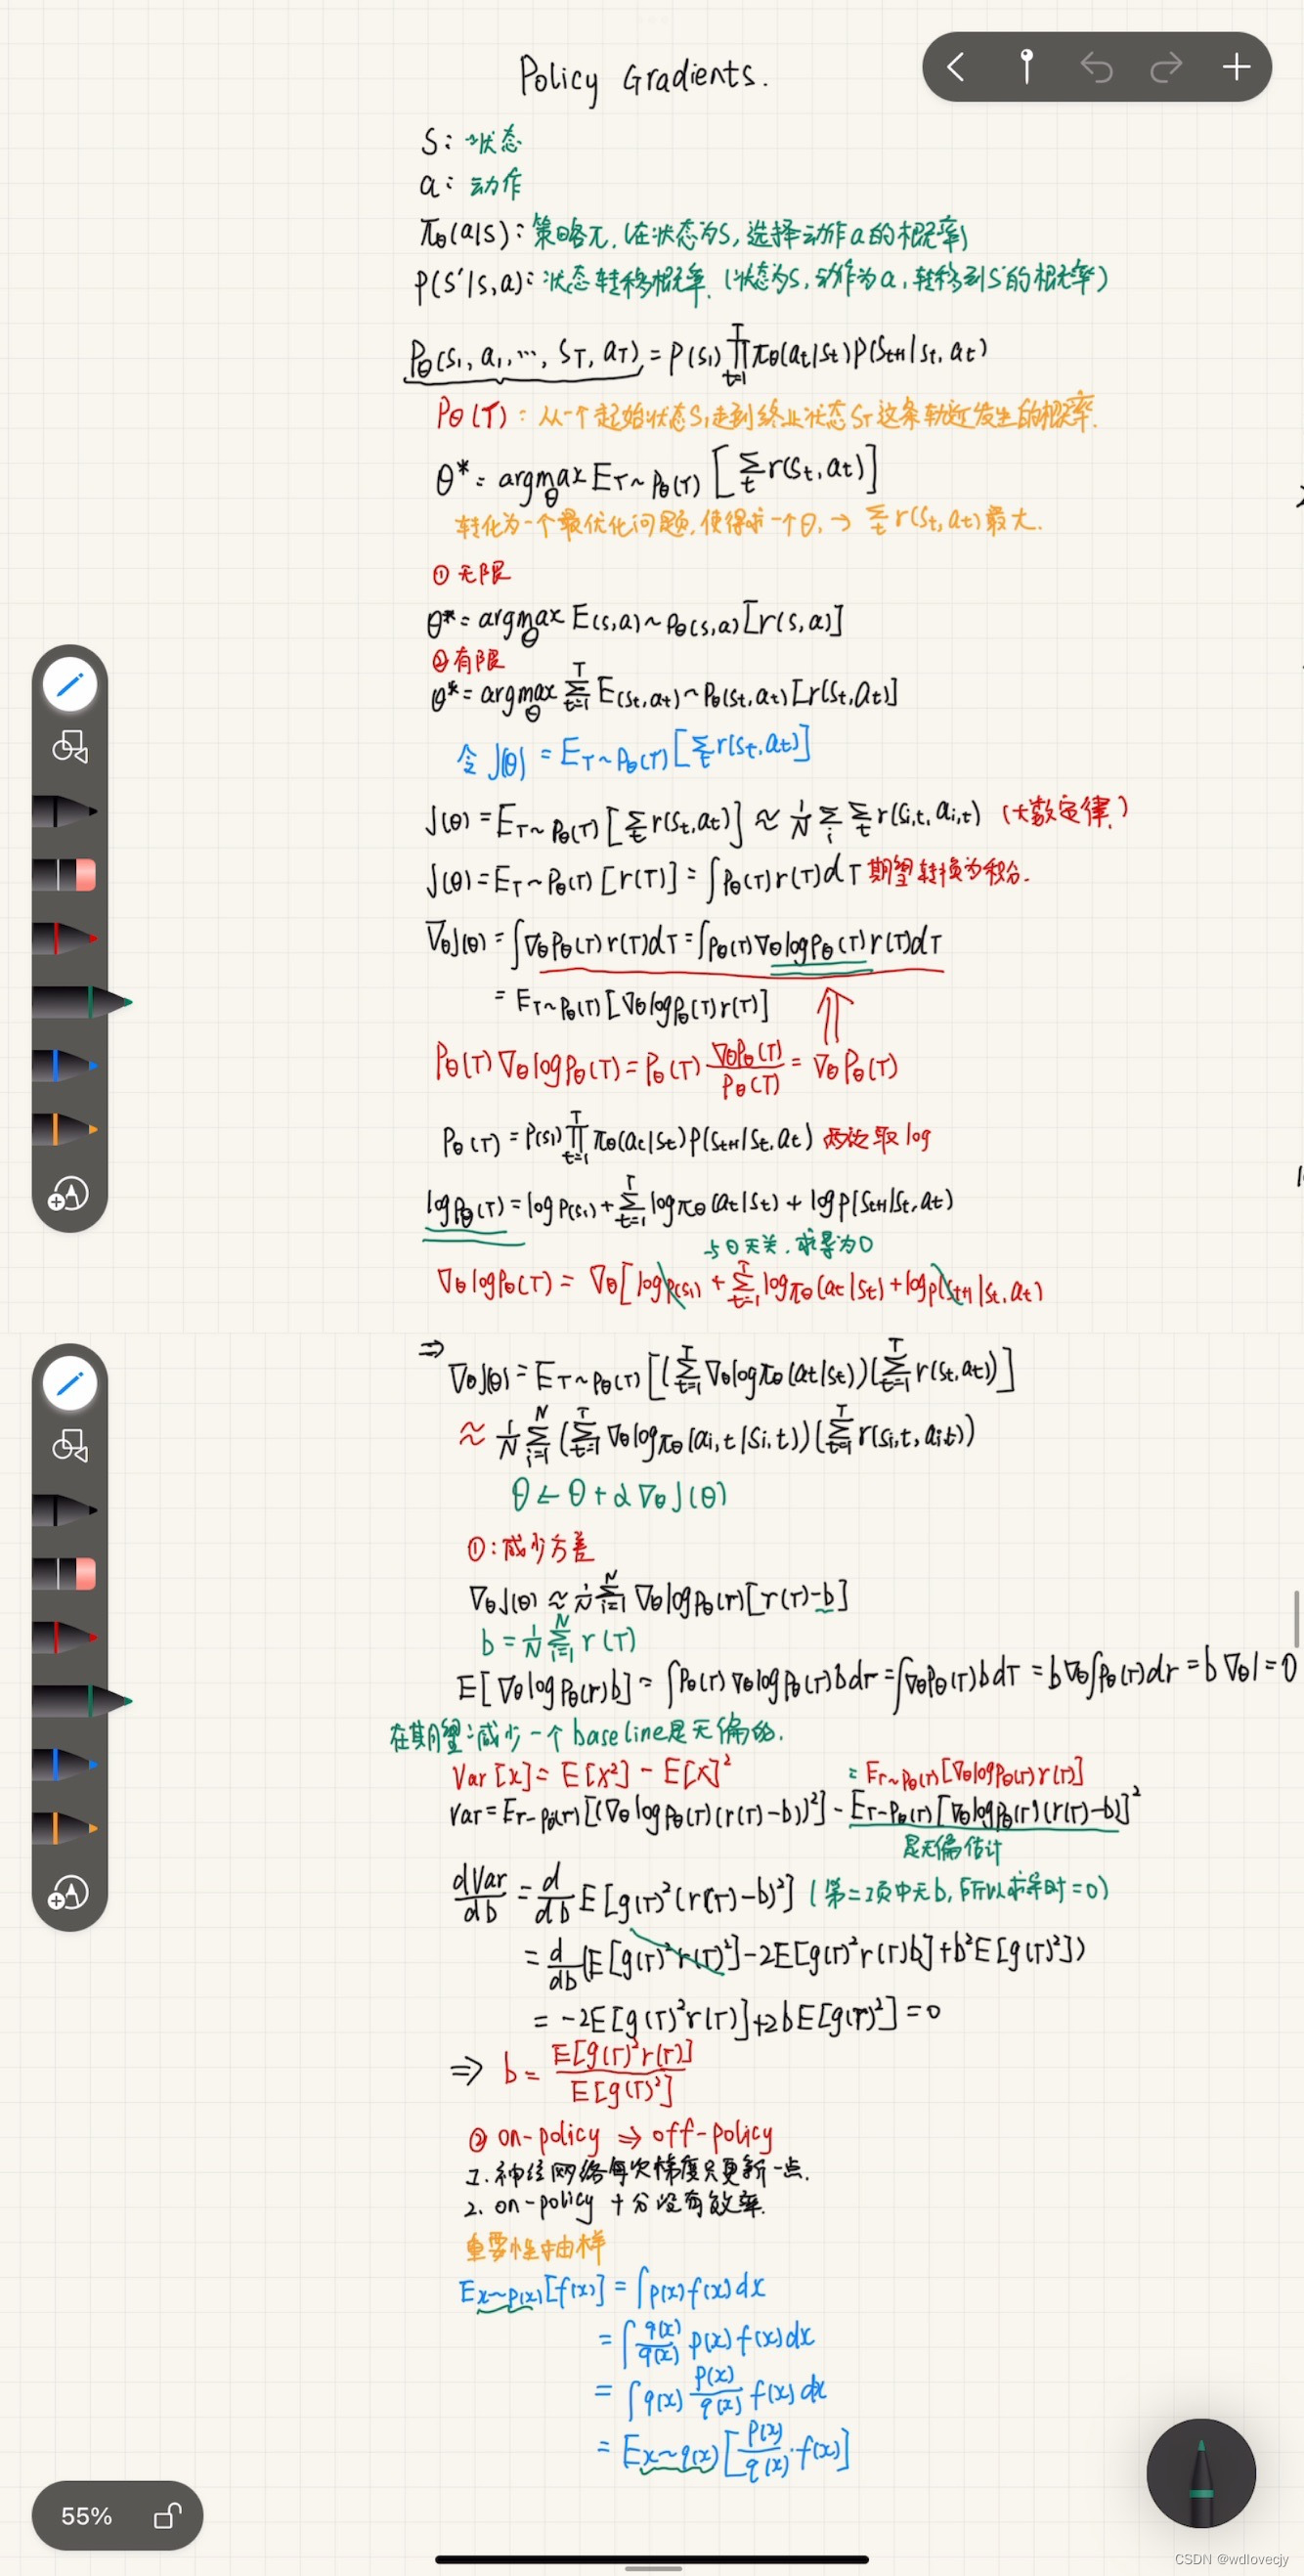 Policy Gradients.
S: 状态
a: 动作
πθ(a|s): 策略π.(在状态为S,选择动作a的概率)
p(s'|s,a): 状态转移概率.(状态为S,动作为a,转移到S'的概率)
Pθ(s₁,a₁,…,s_T,a_T) = p(s₁)∏_{t=1}^{T} πθ(at|st)p(st+1|st,at)
Pθ(τ): 从一个起始状态S₁走到终止状态S_T这条轨迹发生的概率.
θ* = argmax_θ E_{τ~Pθ(τ)} [∑_t r(st,at)]
转化为一个最优化问题,使得求一个θ,→ ∑_t r(st,at)最大.
① 无限
θ* = argmax_θ E(s,a)~Pθ(s,a)[r(s,a)]
②有限
θ* = argmax_θ ∑_{t=1}^{T} E(st,at)~Pθ(st,at)[r(st,at)]
令 J(θ) = E_{τ~Pθ(τ)} [∑_t r(st,at)]
J(θ) = E_{τ~Pθ(τ)} [∑_t r(st,at)] ≈ 1/N ∑_i ∑_t r(si,t,ai,t) (大数定律.)
J(θ) = E_{τ~Pθ(τ)} [r(τ)] = ∫Pθ(τ)r(τ)dτ 期望转换为积分.
∇θJ(θ) = ∫∇θPθ(τ)r(τ)dτ = ∫Pθ(τ)∇θlogPθ(τ)r(τ)dτ
= E_{τ~Pθ(τ)}[∇θlogPθ(τ)r(τ)]
Pθ(τ)∇θlogPθ(τ) = Pθ(τ) ∇θPθ(τ)/Pθ(τ) = ∇θPθ(τ)
Pθ(τ) = P(s₁)∏_{t=1}^{T} πθ(at|st)p(st+1|st,at) 两边取log
logPθ(τ) = logp(s₁) + ∑_{t=1}^{T} logπθ(at|st) + logp(st+1|st,at)
与θ无关,求导为0
∇θlogPθ(τ) = ∇θ[logp(s₁) + ∑_{t=1}^{T} logπθ(at|st) + logp(st+1|st,at)
⇒ ∇θJ(θ) = E_{τ~Pθ(τ)} [(∑_{t=1}^{T} ∇θlogπθ(at|st))(∑_{t=1}^{T} r(st,at))]
≈ 1/N ∑_{i=1}^{N} (∑_{t=1}^{T} ∇θlogπθ(ai,t|si,t))(∑_{t=1}^{T} r(si,t,ai,t))
θ ← θ + α∇θJ(θ)
①:减少方差
∇θJ(θ) ≈ 1/N ∑_{i=1}^{N} ∇θlogPθ(τ)[r(τ)-b]
b = 1/N ∑_{i=1}^{N} r(τ)
E[∇θlogPθ(τ)b] = ∫Pθ(τ)∇θlogPθ(τ)bdτ = ∫∇θPθ(τ)bdτ = b∇θ∫Pθ(τ)dτ = b∇θ1 = 0
在期望减少一个baseline是无偏的.
Var[x] = E[x²] - E[x]²
= E_{τ~Pθ(τ)}[∇θlogPθ(τ)r(τ)]
Var = E_{τ~Pθ(τ)}[(∇θlogPθ(τ)(r(τ)-b))²] - E_{τ~Pθ(τ)}[∇θlogPθ(τ)(r(τ)-b)]²
是无偏估计
dVar/db = d/db E[g(τ)²(r(τ)-b)²] (第二项中无b,所以求导时=0)
= d/db (E[g(τ)²r(τ)²] - 2E[g(τ)²r(τ)b] + b²E[g(τ)²])
= -2E[g(τ)²r(τ)] + 2bE[g(τ)²] = 0
⇒ b = E[g(τ)²r(τ)]/E[g(τ)²]
② on-policy ⇒ off-policy
1. 神经网络每次梯度只更新一点.
2. on-policy 十分没有效率.
重要性抽样
E_{x~p(x)}[f(x)] = ∫p(x)f(x)dx
= ∫ q(x)/q(x) p(x)f(x)dx
= ∫q(x) p(x)/q(x) f(x)dx
= E_{x~q(x)} [p(x)/q(x)·f(x)]
55%
CSDN @wdlovecjy